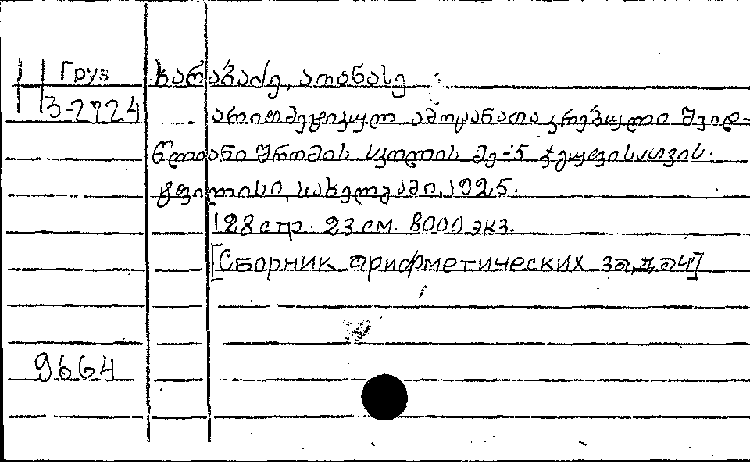 Груз
3-2724
ხარაბაძე, ათანასე
არითმეტიკულ ამოცანათა კრებული შვიდ-
წლიანი შრომის სკოლის მე-5 ჯგუფისათვის.
ტფილისი, სახელგამი, 1925.
128 стр. 23 см. 8000 экз.
[Сборник арифметических задач]
9664